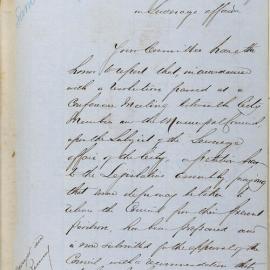 in Sewerage affairs
Your Committee have the
honor to report that in accordance
with a resolution passed at a
Conference Meeting between the City
Members and the Municipal Council
upon the Subject of the Sewerage
affairs of the City, a petition
to the Legislative Assembly praying
that some be taken to
relieve the Council from their present
position, has been prepared and
is now submitted for the approval of the
Council, with a recommendation that